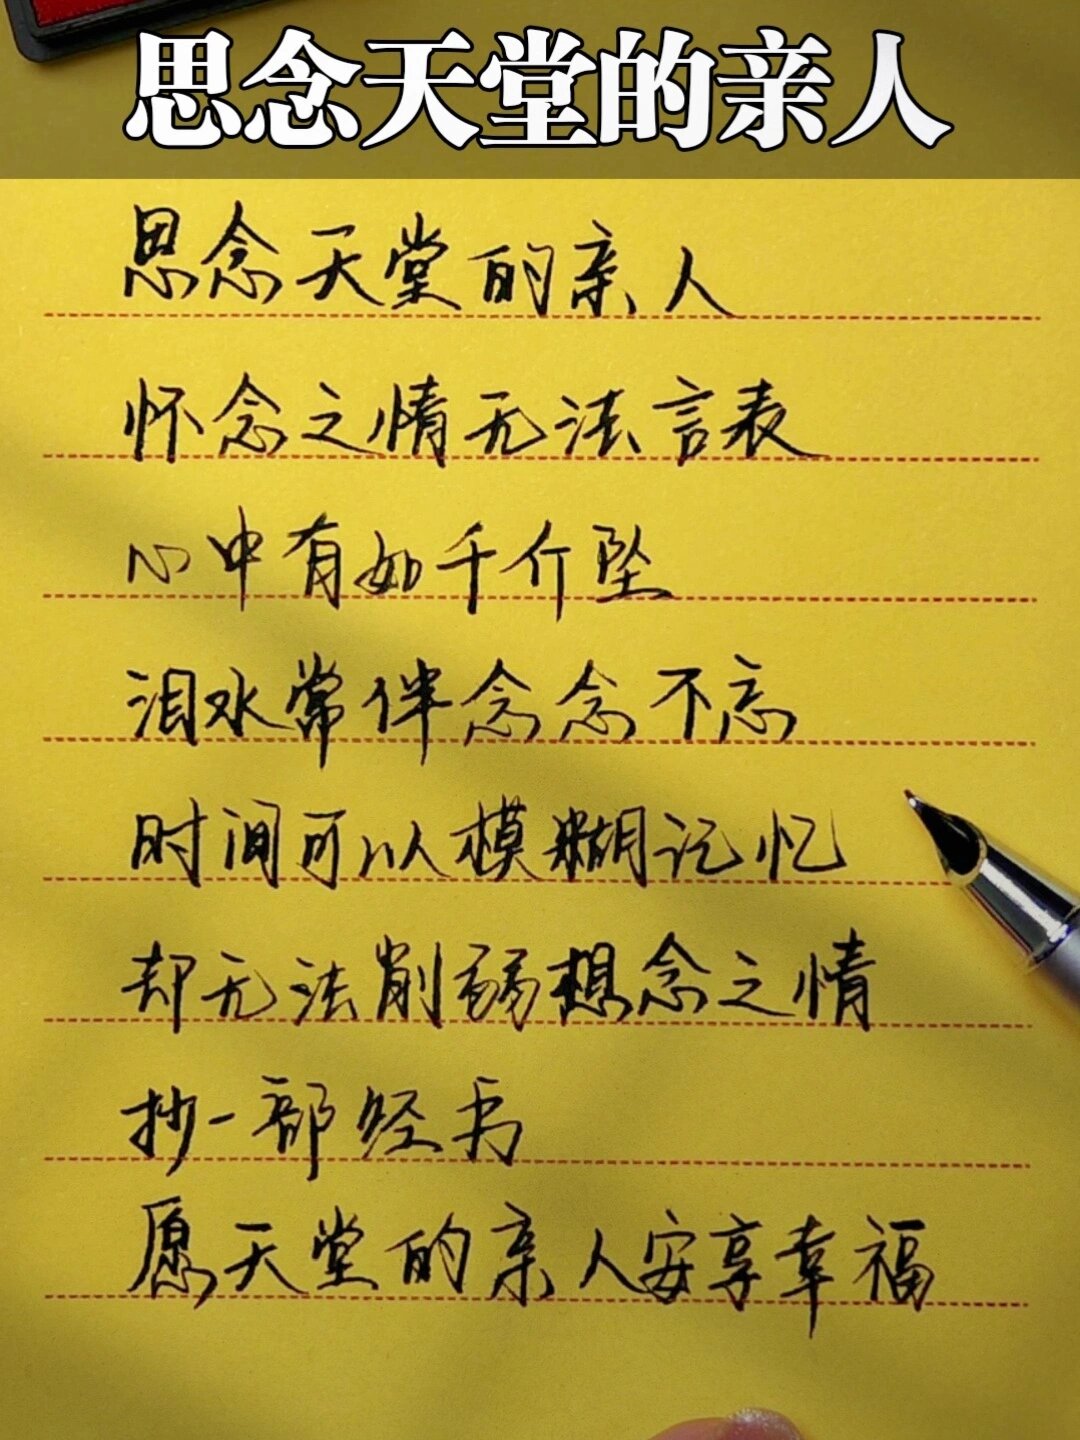 思念天堂的亲人
思念天堂的亲人
怀念之情无法言表
心中有如千斤坠
泪水常伴念念不忘
时间可以模糊记忆
却无法削弱想念之情
抄一部经书
愿天堂的亲人安享幸福